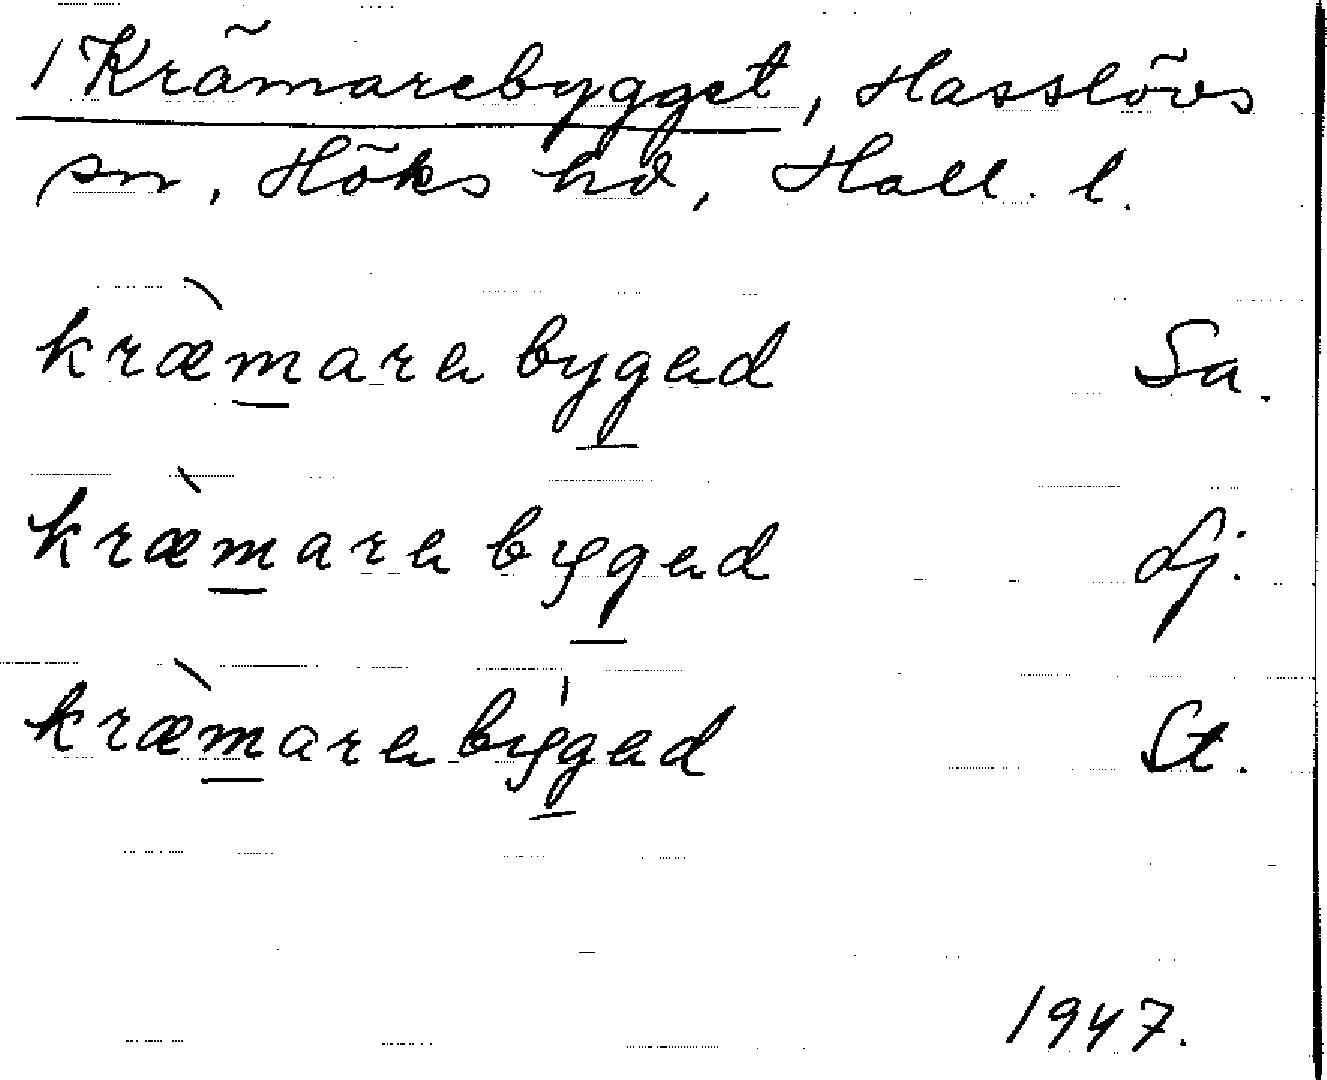 1 Krämarebygget, Hasslövs
sn, Höks hd, Hall. l.
kræ̀marebyged Sa.
kræ̀marebyged Lj.
kræ̀marebýged St.
1947.